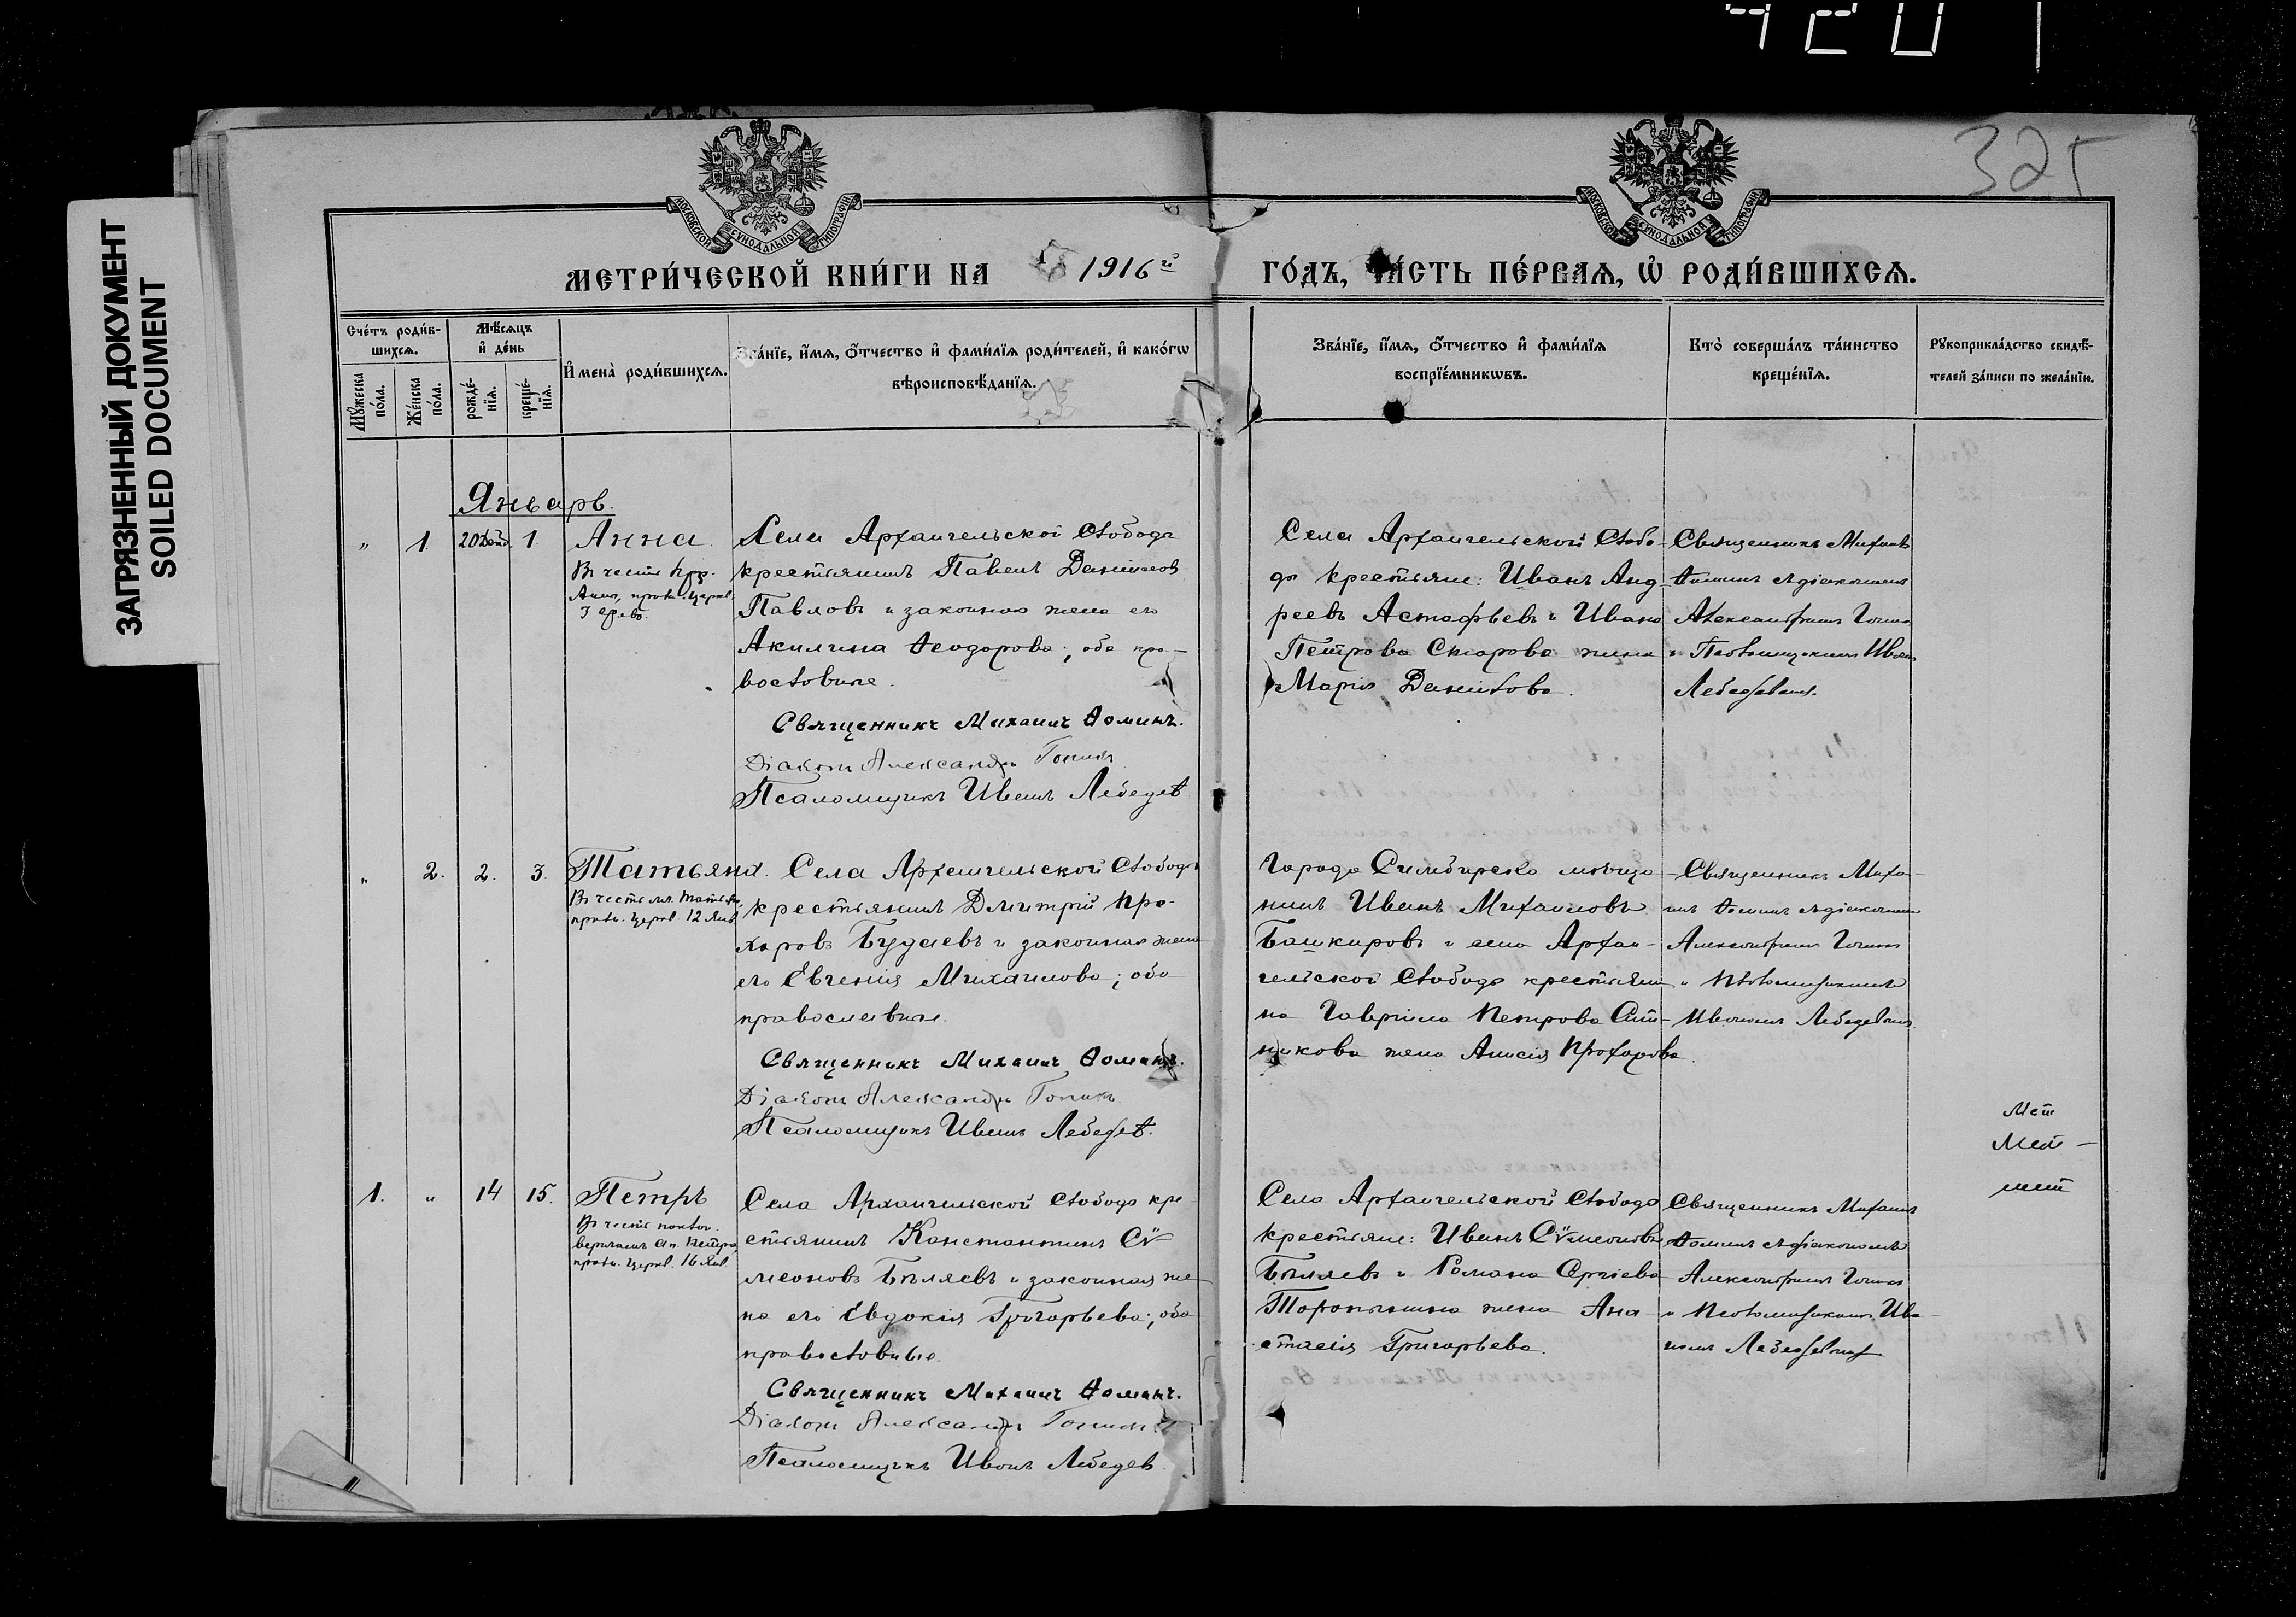 420
325
ЗАГРЯЗНЕННЫЙ ДОКУМЕНТ
SOILED DOCUMENT
МОСКОВСКОЙ СѴНОДАЛЬНОЙ ТИПОГРАФІИ
МОСКОВСКОЙ СѴНОДАЛЬНОЙ ТИПОГРАФІИ
МЕТРИ́ЧЕСКОЙ КНИ́ГИ НА 1916й ГО́ДЪ, ЧА́СТЬ ПЕ́РВАѦ, Ѡ҆ РОДИ́ВШИХСѦ.
Сче́тъ роди́в-
шихсѧ.
Мꙋ́жеска
по́ла.
Же́нска
по́ла.
Мѣ́сѧцъ
и҆ де́нь
рожде́-
нїѧ.
креще́-
нїѧ.
И҆мена̀ роди́вшихсѧ.
Зва́нїе, и҆́мѧ, ѻ҆́тчество и҆ фами́лїѧ роди́телей, и҆ како́гѡ
вѣроисповѣ́данїѧ.
Зва́нїе, и҆́мѧ, ѻ҆́тчество и҆ фами́лїѧ
воспрїе́мникѡвъ.
Кто̀ соверша́лъ та́инство
креще́нїѧ.
Рꙋкоприкла́дство свидѣ́-
телей за́писи по жела́нїю.
Январь.
" 1. 20 Дек. 1. Анна.
Въ честь прр.
Анны, празн. церк.
3 февр.
Села Архангельской Слободы
крестьянинъ Павелъ Даниловъ
Павловъ и законная жена его
Акилина Ѳеодорова; оба пра-
вославные.
Священникъ Михаилъ Ѳоминъ.
Діаконъ Александръ Гонинъ
Псаломщикъ Иванъ Лебедевъ
Села Архангельской Слобо-
ды крестьяне: Иванъ Анд-
реевъ Астафьевъ и Ивана
Петрова Старова жена
Марія Данилова.
Священникъ Михаилъ
Ѳоминъ съ діакономъ
Александромъ Гонин
и Псаломщикомъ Иваном
Лебедевымъ.
" 2. 2. 3. Татьяна.
Въ честь мч. Татьяны,
празн. церк. 12 Янв.
Села Архангельской Слободы
крестьянинъ Дмитрій Про-
хоровъ Будаевъ и законная жена
его Евгенія Михаилова; оба
православные.
Священникъ Михаилъ Ѳоминъ.
Діаконъ Александръ Гонинъ
Псаломщикъ Иванъ Лебедевъ.
Города Симбирска мѣща-
нинъ Иванъ Михаиловъ
Башкировъ и села Архан-
гельской Слободы крестьяни-
на Гавріила Петрова Сит-
никова жена Анисія Прохорова.
Священникъ Миха-
илъ Ѳоминъ съ діакономъ
Александромъ Гонин
и Псаломщикомъ
Иваномъ Лебедевымъ.
1. " 14 15. Петръ
Въ честь поклон.
веригамъ Ап. Петра,
празн. церк. 16 Янв.
Села Архангельской Слободы кре-
стьянинъ Константинъ Сѵ-
меоновъ Бѣляевъ и законная же-
на его Евдокія Григорьева; оба
православные.
Священникъ Михаилъ Ѳоминъ.
Діаконъ Александръ Гонинъ
Псаломщикъ Иванъ Лебедев
Села Архангельской Слободы
крестьяне: Иванъ Сѵмеоновъ
Бѣляевъ и Романа Сергіева
Торопыгина жена Ана-
стасія Григорьева.
Священникъ Михаилъ
Ѳоминъ съ діакономъ
Александромъ Гонин
и Псаломщикомъ Ива-
номъ Лебедевымъ